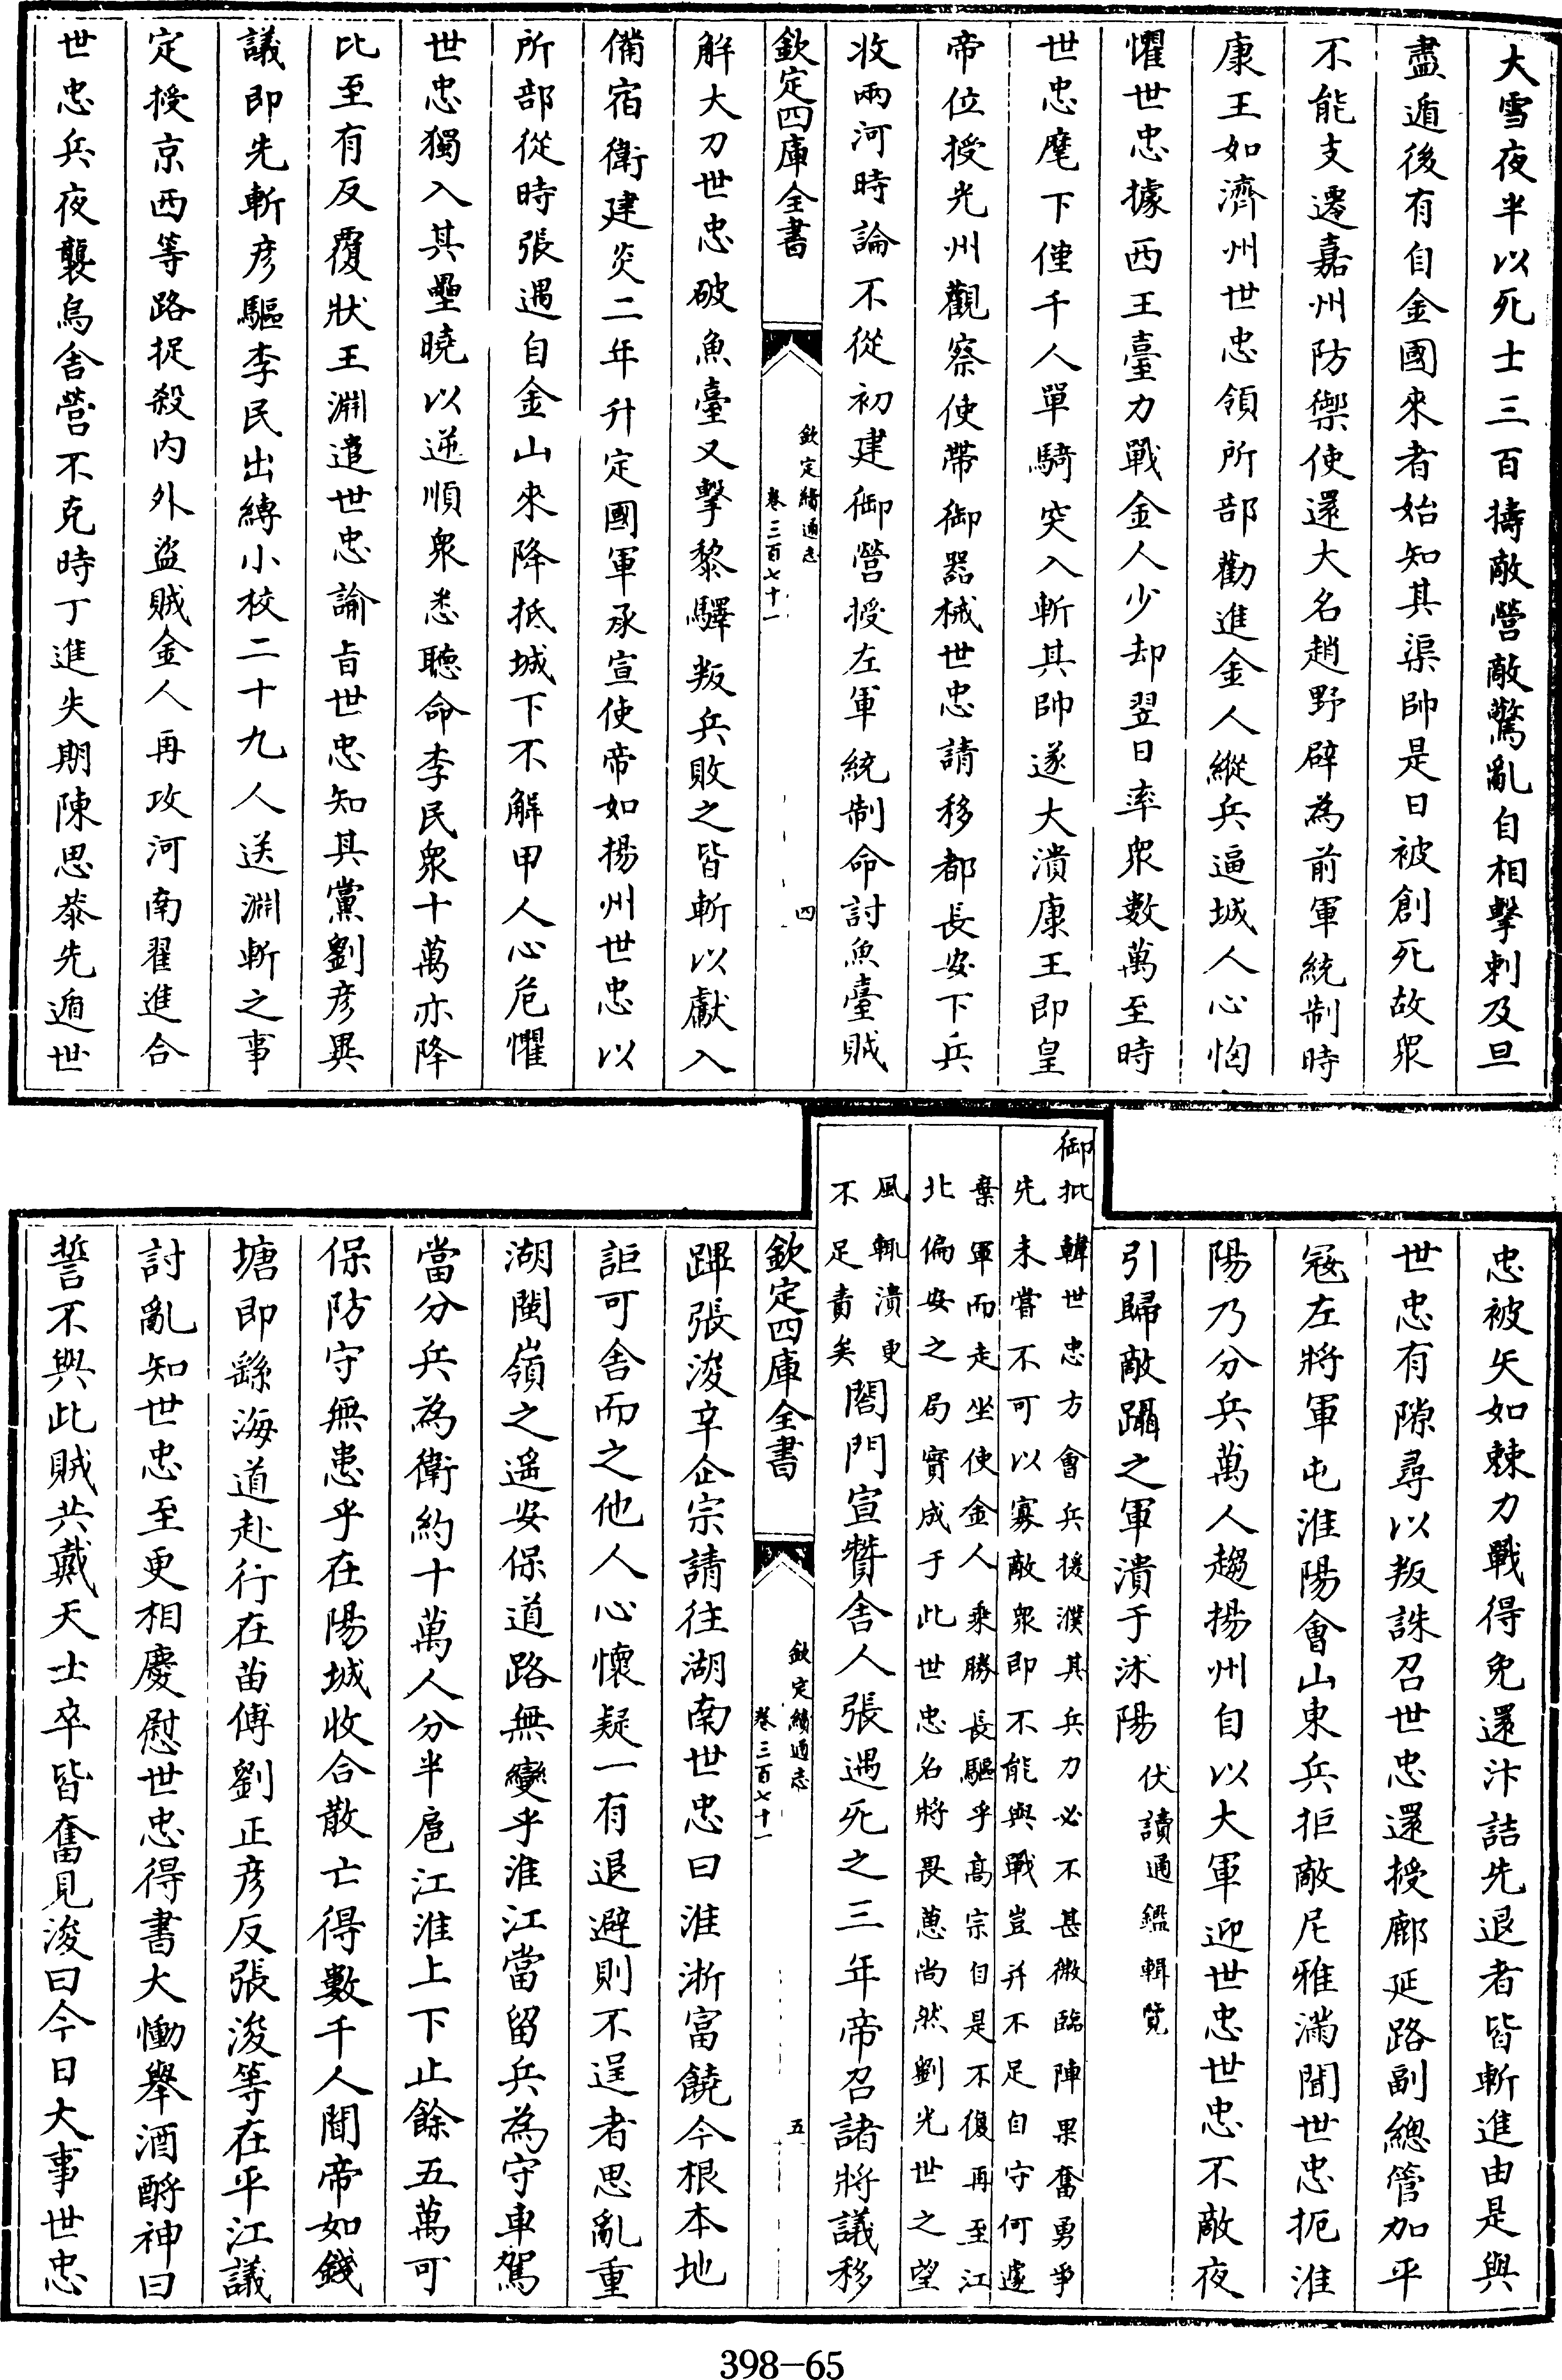 大雪夜半以死士三百擣敵營敵驚亂自相擊刺及旦
盡遁後有自金國來者始知其渠帥是日被創死故衆
不能支遷嘉州防禦使還大名趙野辟為前軍統制時
康王如濟州世忠領所部勸進金人縱兵逼城人心恟
懼世忠據西王臺力戰金人少却翌日率衆數萬至時
世忠麾下僅千人單騎突入斬其帥遂大潰康王即皇
帝位授光州觀察使帶御器械世忠請移都長安下兵
收兩河時論不從初建御營授左軍統制命討魚臺賊
欽定四庫全書
欽定續通志
卷三百七十一
四
解大刀世忠破魚臺又擊黎驛叛兵敗之皆斬以獻入
備宿衛建炎二年升定國軍承宣使帝如揚州世忠以
所部從時張遇自金山來降抵城下不解甲人心危懼
世忠獨入其壘曉以逆順衆悉聽命李民衆十萬亦降
比至有反覆狀王淵遣世忠諭旨世忠知其黨劉彥異
議即先斬彥驅李民出縛小校二十九人送淵斬之事
定授京西等路捉殺內外盜賊金人再攻河南翟進合
世忠兵夜襲烏舍營不克時丁進失期陳思恭先遁世
忠被矢如棘力戰得免還汴詰先退者皆斬進由是與
世忠有隙尋以叛誅召世忠還授鄜延路副總管加平
寇左將軍屯淮陽會山東兵拒敵尼雅滿聞世忠扼淮
陽乃分兵萬人趨揚州自以大軍迎世忠世忠不敵夜
引歸敵躡之軍潰于沭陽伏讀通鑑輯覽
御批韓世忠方會兵援濮其兵力必不甚微臨陣果奮勇爭
先未嘗不可以寡敵衆即不能與戰豈并不足自守何遽
棄軍而走坐使金人乘勝長驅乎高宗自是不復再至江
北偏安之局實成于此世忠名將畏葸尚然劉光世之望
風輒潰更
不足責矣閤門宣贊舍人張遇死之三年帝召諸將議移
欽定四庫全書
欽定續通志
卷三百七十一
五
蹕張浚辛企宗請往湖南世忠曰淮浙富饒今根本地
詎可舍而之他人心懷疑一有退避則不逞者思亂重
湖閩嶺之遥安保道路無變乎淮江當留兵為守車駕
當分兵為衛約十萬人分半扈江淮上下止餘五萬可
保防守無患乎在陽城收合散亡得數千人聞帝如錢
塘即繇海道赴行在苗傅劉正彥反張浚等在平江議
討亂知世忠至更相慶慰世忠得書大慟舉酒酹神曰
誓不與此賊共戴天士卒皆奮見浚曰今日大事世忠
398-65